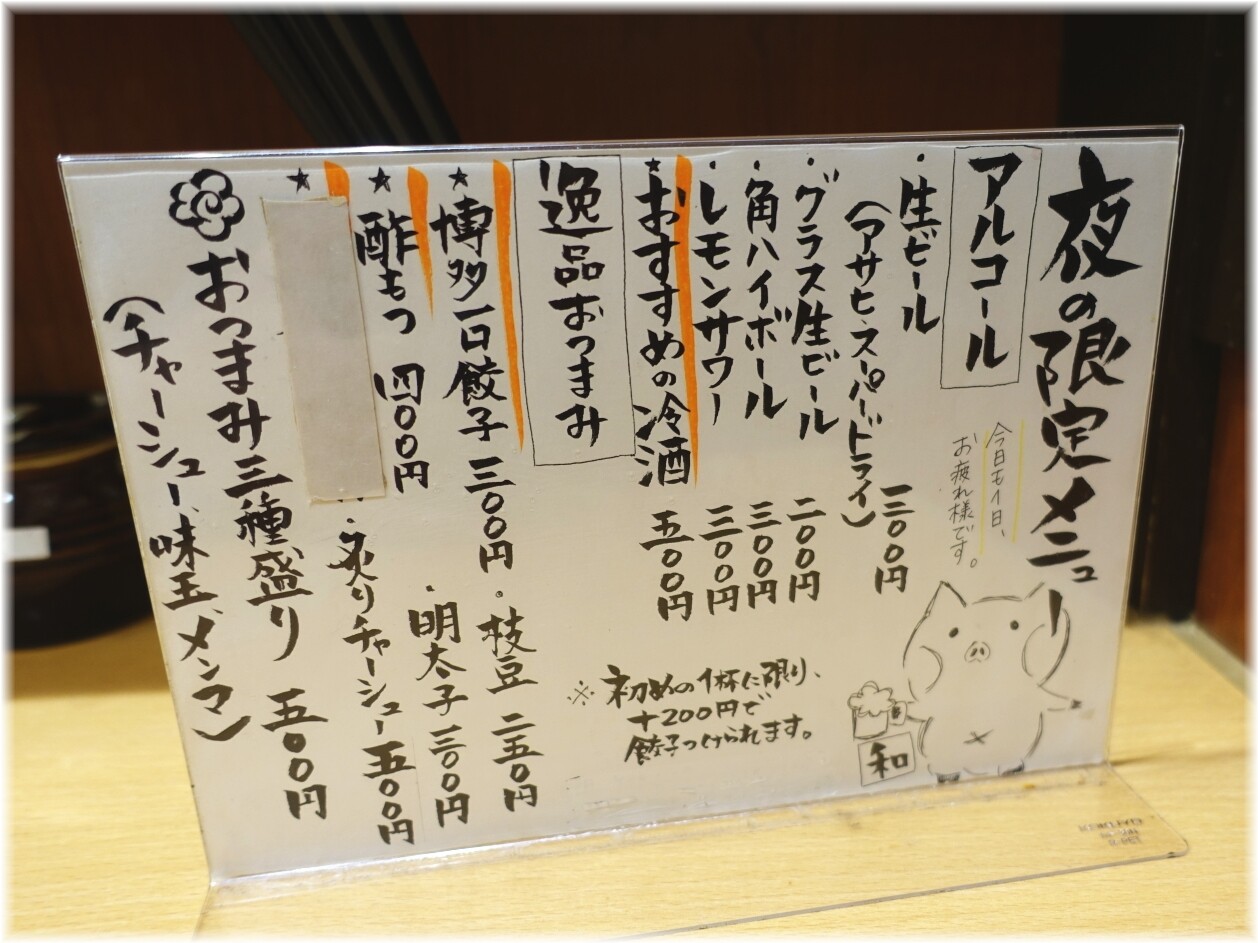 夜の限定メニュー
今日も1日、
お疲れ様です。
和
アルコール
・生ビール 三〇〇円
(アサヒスーパードライ)
・グラス生ビール 二〇〇円
・角ハイボール 三〇〇円
・レモンサワー 三〇〇円
★おすすめの冷酒 五〇〇円
※初めの1杯に限り、
+200円で
餃子つけられます。
逸品おつまみ
★博多一口餃子 三〇〇円
・枝豆 二五〇円
★酢もつ 四〇〇円
・明太子 三〇〇円
★
・炙りチャーシュー 五〇〇円
おつまみ三種盛り 五〇〇円
(チャーシュー、味玉、メンマ)